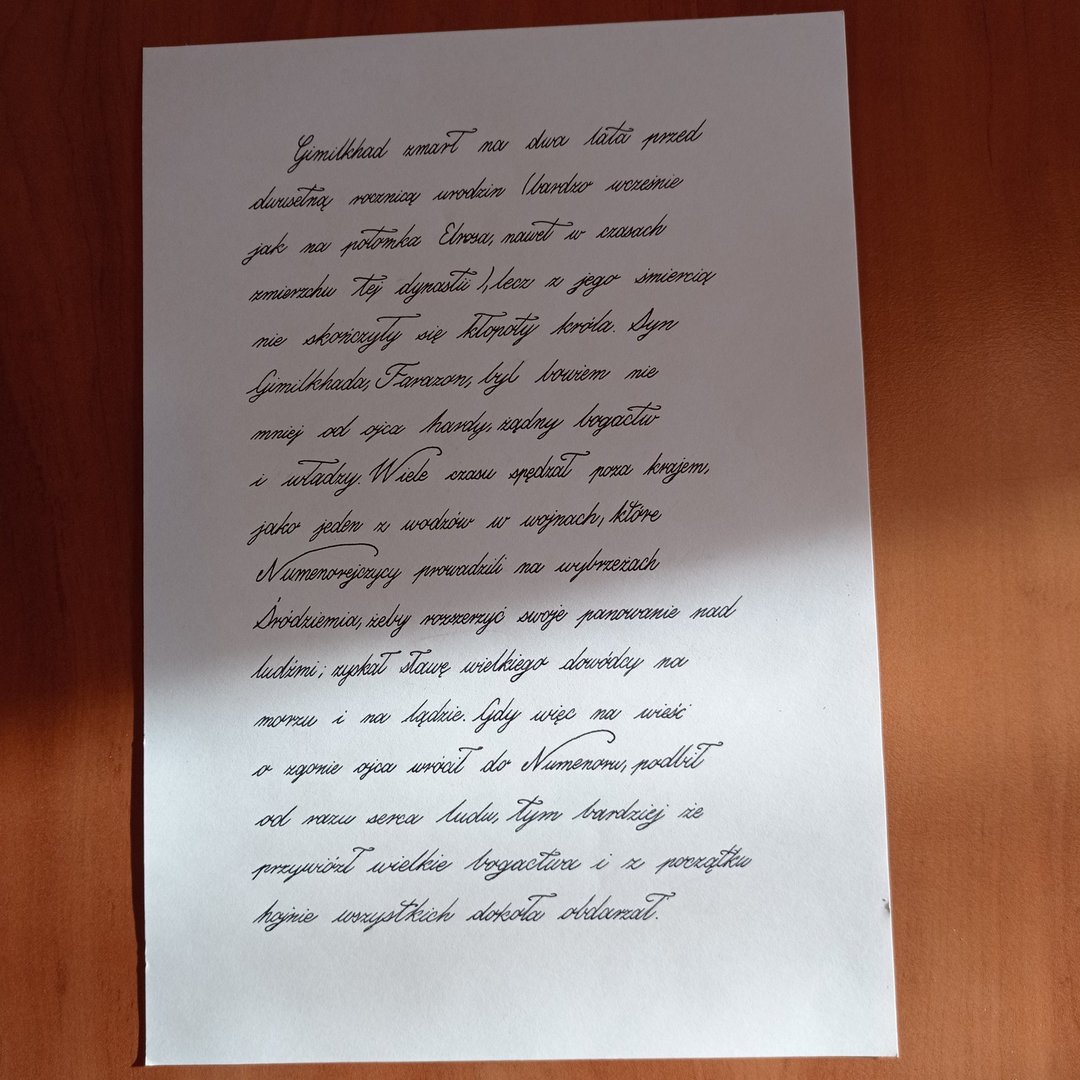 Gimilkhad zmarł na dwa lata przed
dwusetną rocznicą urodzin (bardzo wcześnie
jak na potomka Elrosa, nawet w czasach
zmierzchu tej dynastii), lecz z jego śmiercią
nie skończyły się kłopoty króla. Syn
Gimilkhada, Farazon, był bowiem nie
mniej od ojca hardy, żądny bogactw
i władzy. Wiele czasu spędzał poza krajem,
jako jeden z wodzów w wojnach, które
Numenorejczycy prowadzili na wybrzeżach
Śródziemia, żeby rozszerzyć swoje panowanie nad
ludźmi; zyskał sławę wielkiego dowódcy na
morzu i na lądzie. Gdy więc na wieść
o zgonie ojca wrócił do Numenoru, podbił
od razu serca ludu, tym bardziej że
przywiózł wielkie bogactwa i z początku
hojnie wszystkich dokoła obdarzał.